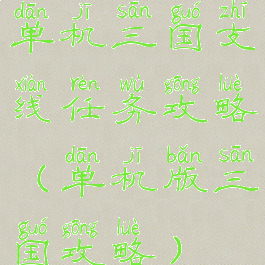 dān jī sān guó zhī
单机三国支
xiàn rèn wù gōng lüè
线任务攻略
dān jī bǎn sān
(单机版三
guó gōng lüè
国攻略)